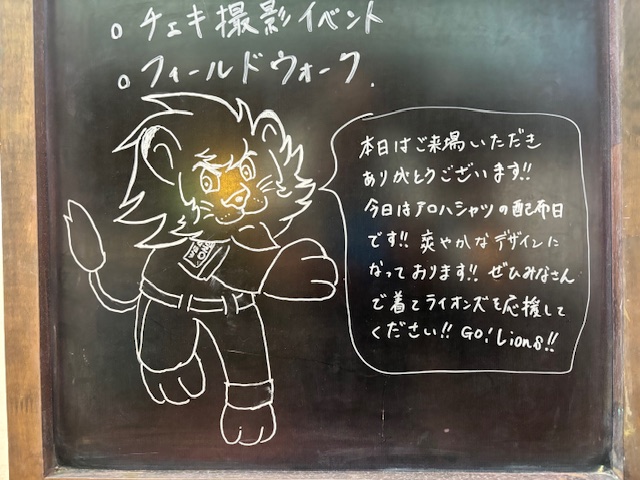 ○ チェキ撮影イベント
○ フィールドウォーク.
本日はご来場いただき
ありがとうございます!!
今日はアロハシャツの配布日
です!! 爽やかなデザインに
なっております!! ぜひみなさん
で着てライオンズを応援して
ください!! GO! Lions!!
WE
ONE